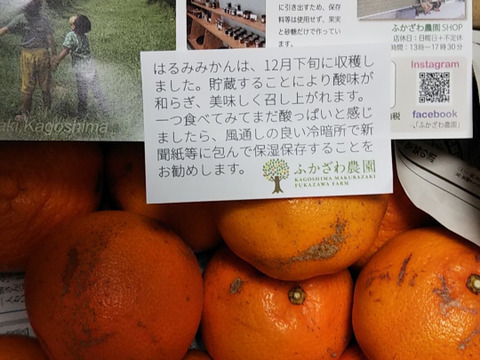 に引き出すため、保存
料等は使用せず、果実
と砂糖だけで作ってい
ます。
ふかざわ農園SHOP
店休日:日曜日+不定休
時間:13時〜17時30分
Instagram
facebook
「ふかざわ農園」
aki Kagoshima
はるみみかんは、12月下旬に収穫し
ました。貯蔵することにより酸味が
和らぎ、美味しく召し上がれます。
一つ食べてみてまだ酸っぱいと感じ
ましたら、風通しの良い冷暗所で新
聞紙等に包んで保湿保存することを
お勧めします。
ふかざわ農園
KAGOSHIMA MAKURAZAKI
FUKAZAWA FARM